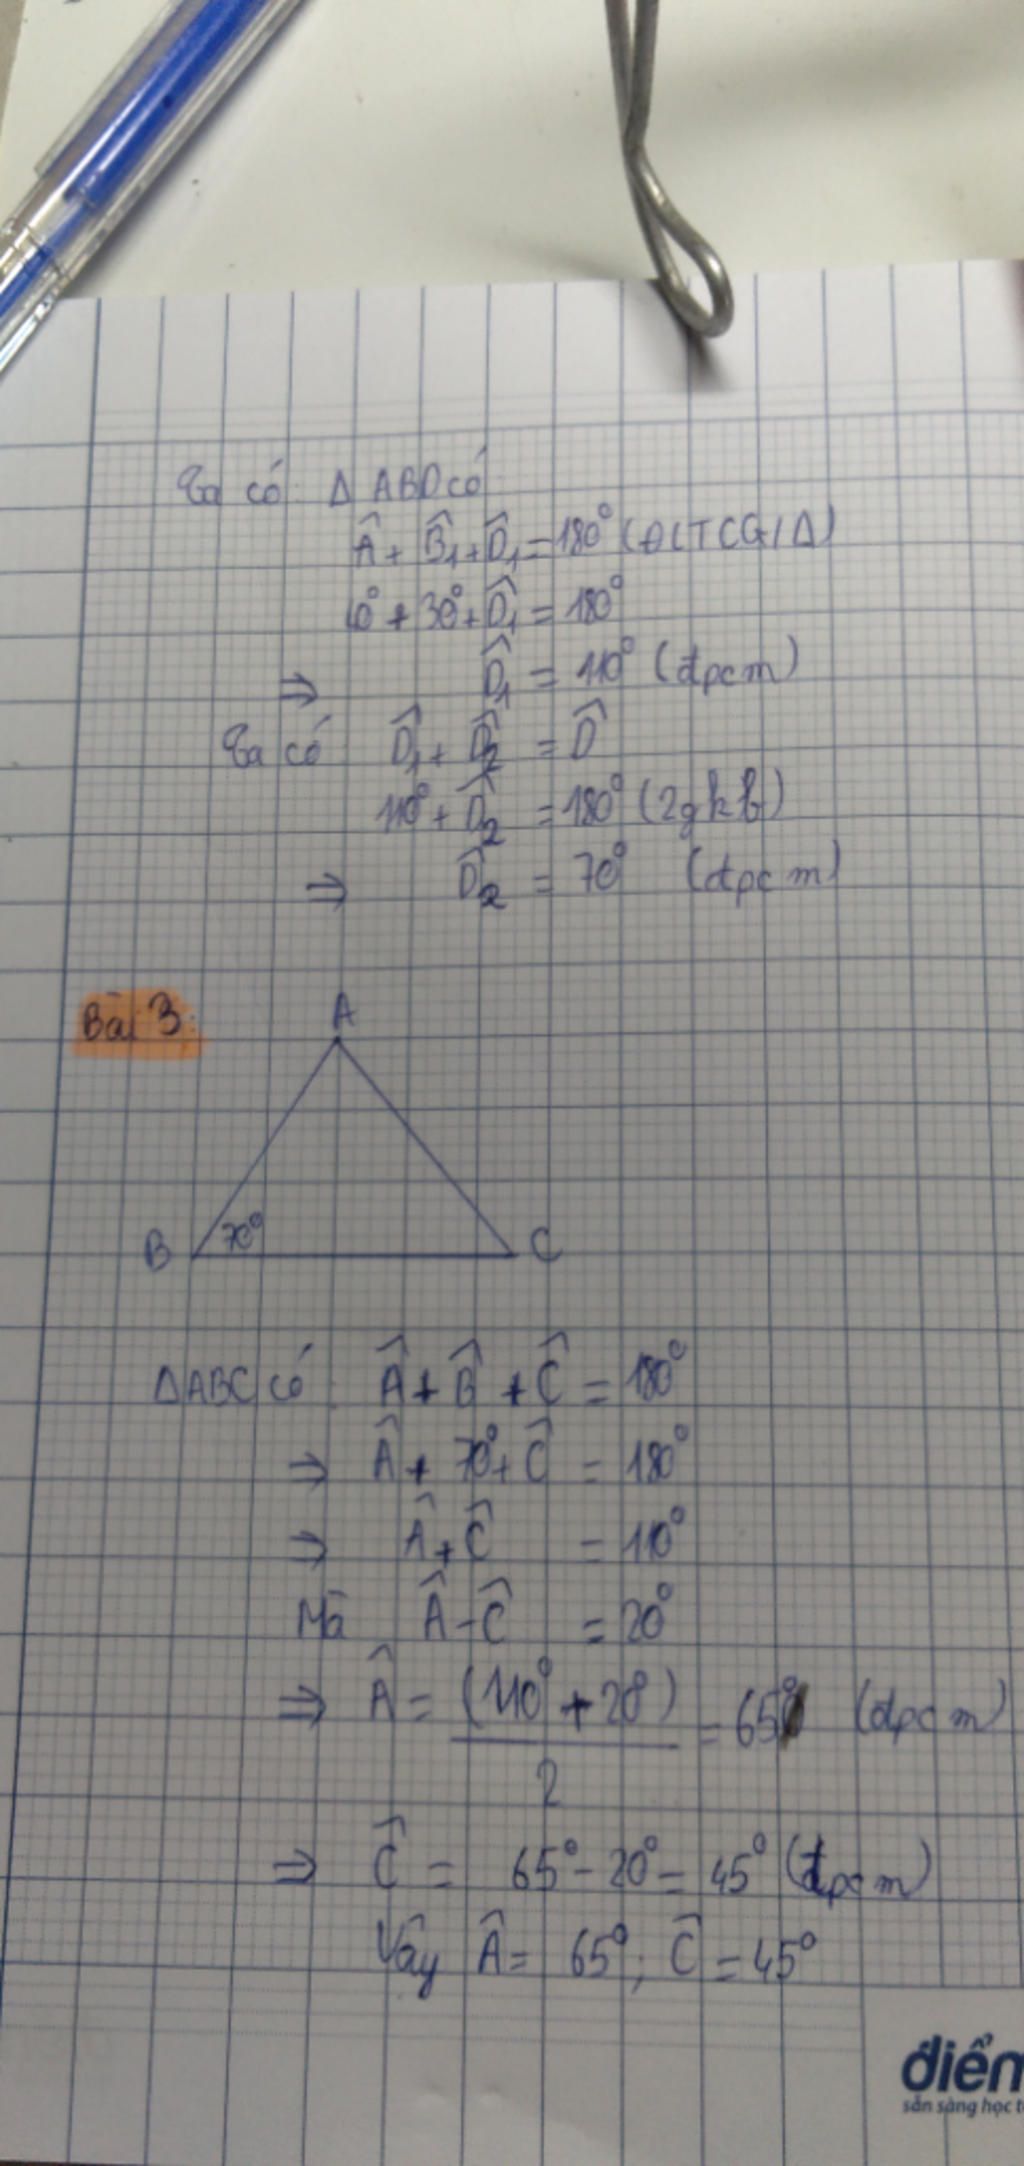 Ta có: Δ ABD có
Â + B̂₁ + D̂₁ = 180° (ĐLTCG1Δ)
40° + 30° + D̂₁ = 180°
⇒ D̂₁ = 110° (đpcm)
Ta có D̂₁ + D̂₂ = D̂
110° + D̂₂ = 180° (2gkb)
⇒ D̂₂ = 70° (đpcm)
Bài 3:
A
70°
B C
ΔABC có: Â + B̂ + Ĉ = 180°
⇒ Â + 70° + Ĉ = 180°
⇒ Â + Ĉ = 110°
Mà Â - Ĉ = 20°
⇒ Â = (110° + 20°) / 2 = 65° (đpcm)
⇒ Ĉ = 65° - 20° = 45° (đpcm)
Vậy Â = 65°; Ĉ = 45°
điểm
sẵn sàng học t